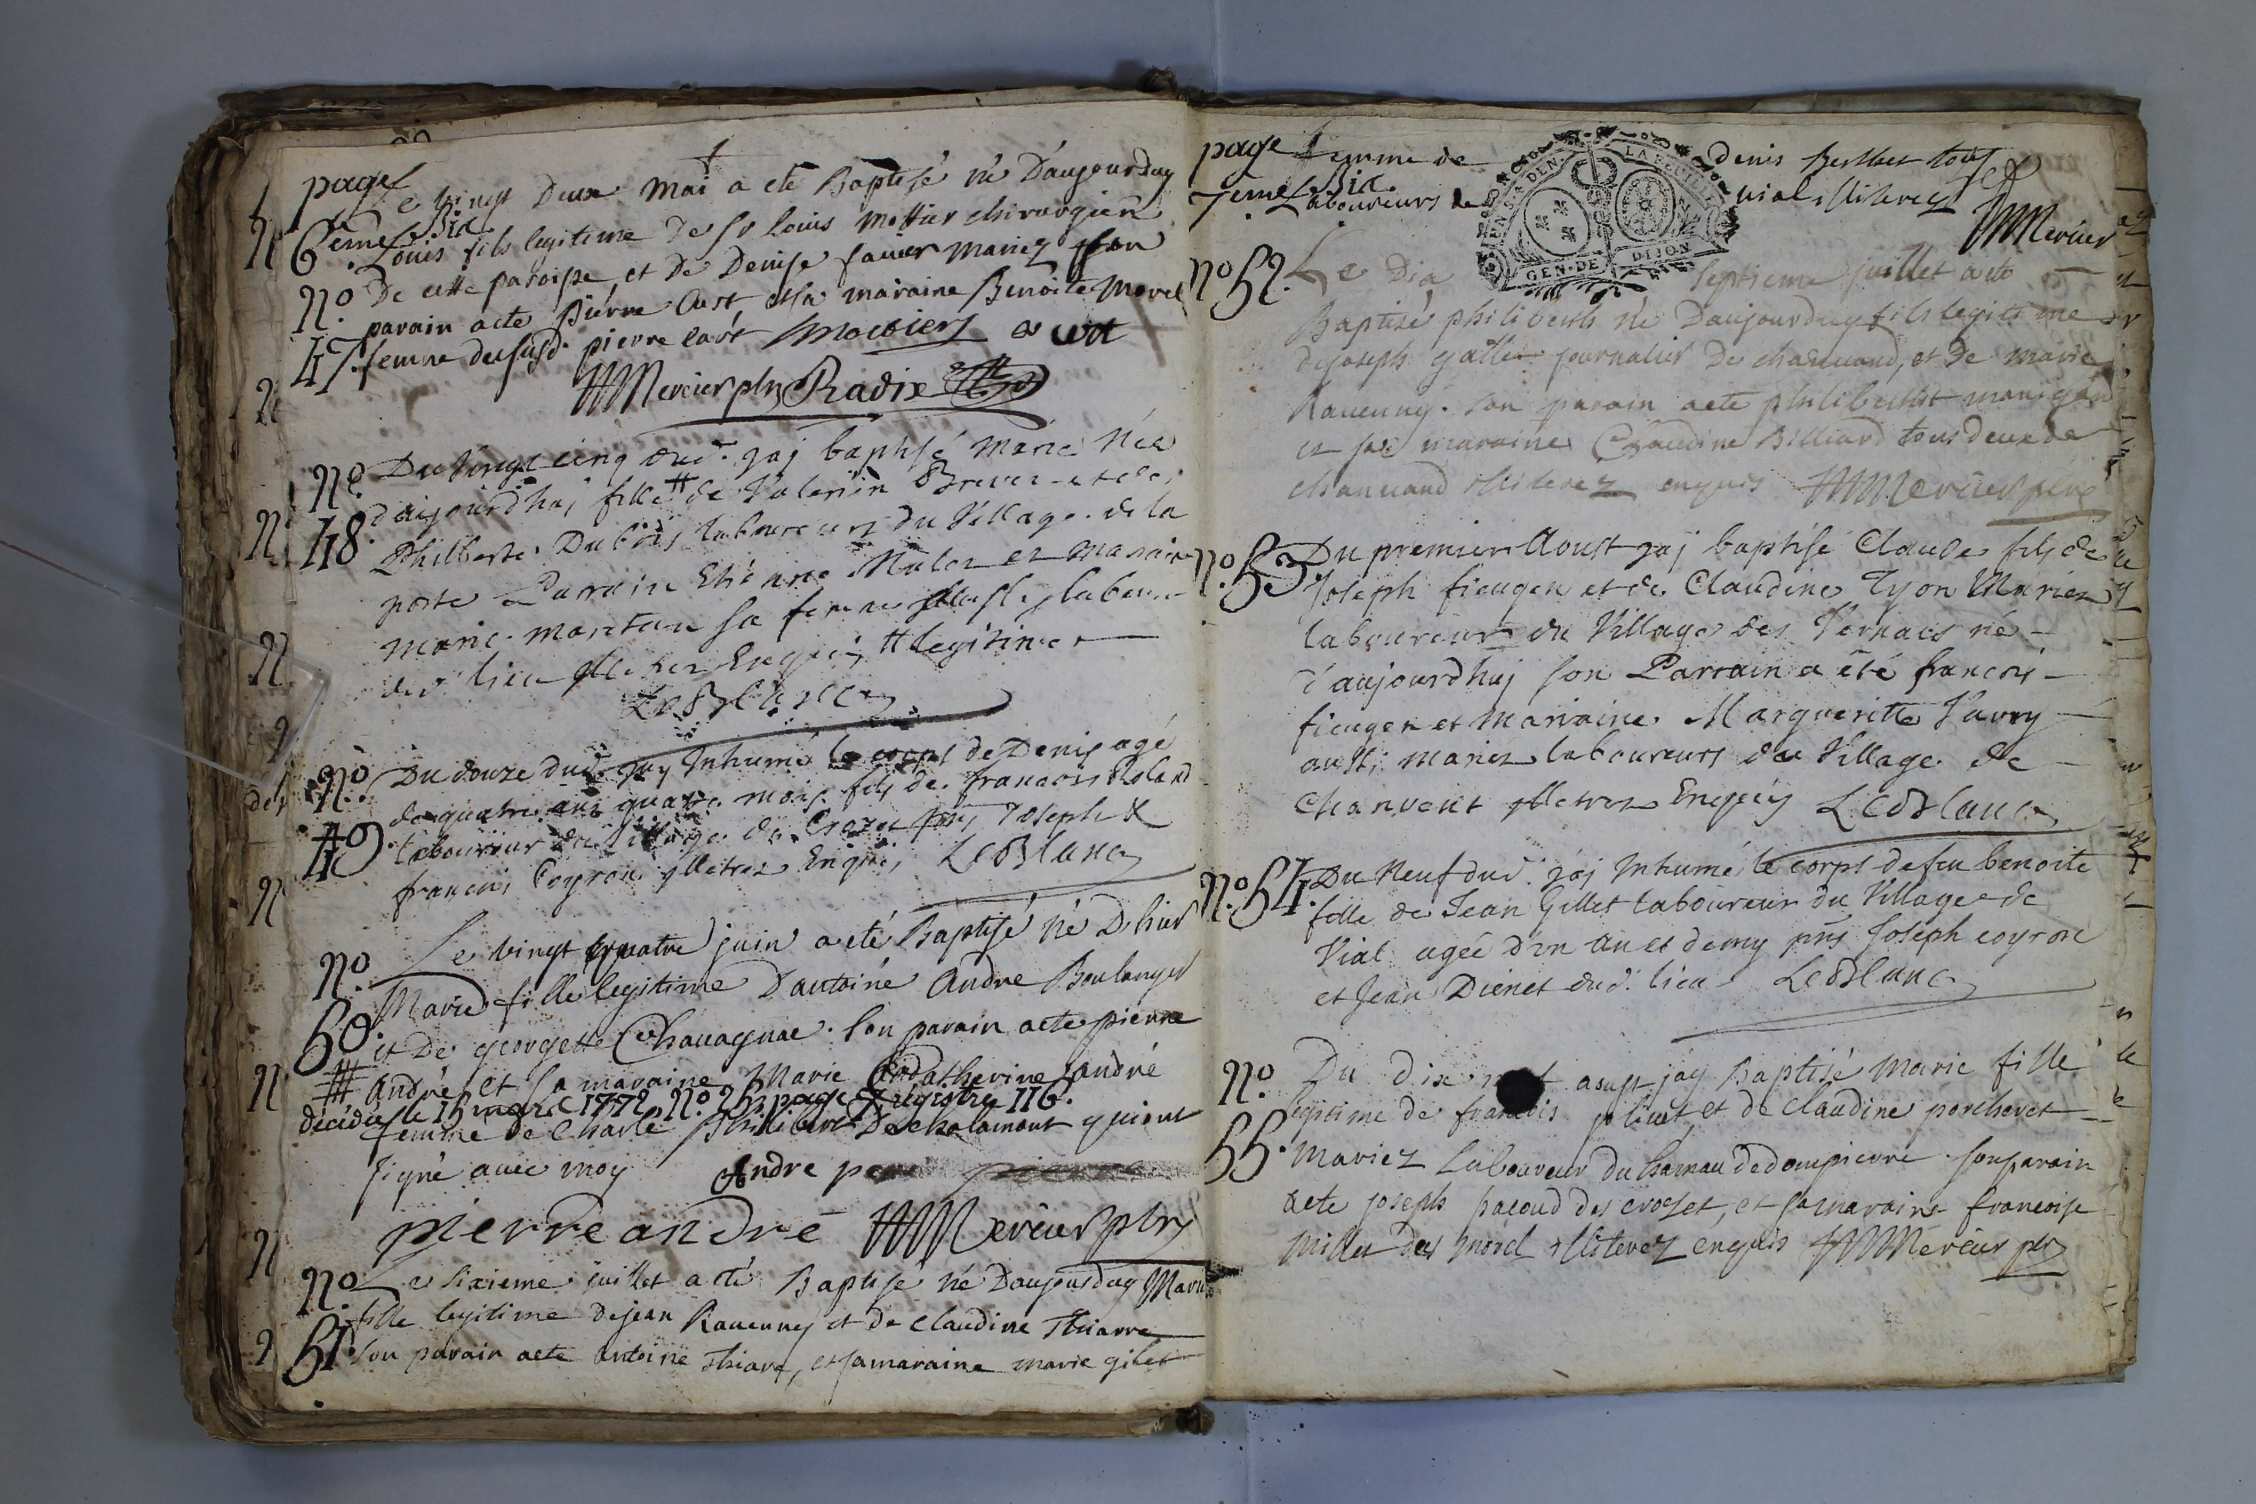 page
6eme Bia
Le vingt Deux mai a eté Baptisé né D'aujourduy
Louis fils legitime De Sr Louis Mottier chirurgien
De cette paroisse, et De Denise favier mariez son
No.
47.
parain aete Pierre Cart et sa maraine Benoite Morel
femme dususd. pierre cart Mottier
Mercier ptre Radix
No.
48.
Du vingt cinq dud. jaj baptisé Marie Née
d'aujourd'huj fille # de Valentin Brever et de
Philberte Dubois laboureurs du Village de la
poste Parrain Etienne Mulot et maraine
marie sa femme labou
dud. lieu Illetrez Enquis # legitime
LeBlanc
No.
49.
Du douze dud. jaj Inhumé le corps de Denis agé
de quatre ans quatre mois fils de francois Roland
laboureur du Village du Crozet pnts Joseph &
francois Coyron yllletrez Enquis LeBlanc
No.
50.
Le vingt quatre juin a eté Baptisé né D hier
Marie fille legitime D'antoine andre Boulanger
et De georgette Chauagnac. Son parain aete pierre
# andré et sa maraine Marie Catherine andré
décédée le 15 mars 1772. No. 25 page 7 régistre 116.
femme de Charle Philibert Dechalamont qui ont
signé avec moy Andre pere
pierre andré Mercier ptre
No.
51.
Le sixieme juillet a eté Baptisé né Daujourduy Marie
fille legitime de jean Rauenney et de claudine Thiarre
son parain aete antoine Thiare, et sa maraine marie gilet
page
7eme Bia
femme de denis Berthet tous
Laboureurs de vial illiterez
Mercier
GEN. DE DIJON
No. 52.
Le Dix septieme juillet a eté
Baptisé philiberth né Daujourduy fils legitime
de joseph gallet journalier De charuand, et de marie
Rauenney. son parain aete philiberth
et sa maraine Claudine Billiard tous deux de
charuand illiterez enquis Mercier ptre
No. 53.
Du premier Aoust jaj baptisé Claude fils de
Joseph ficugen et de Claudine Tyon Mariez
laboureurs du Village des Vernaes né
d'aujourd'huj son Parrain a été francois
ficugen et marraine Marguerite Vavry
aussi mariez laboureurs du Village de
Chanvent yllletrez Enquis LeBlanc
No. 54.
Du Neuf dud. jaj Inhumé le corps de feu benoite
fille de Jean Gillet laboureur du Village de
Vial agée d'un an et demy pnts Joseph coyron
et Jean Dienet dud. lieu LeBlanc
No.
55.
Du dix aoust jay Baptisé Marie fille
legitime de francois joliuet, et de claudine porcheret
mariez Laboureur du hameau de dompierre son parain
aete joseph pacoud des crozet, et sa maraine francoise
Millet des morel illiterez enquis Mercier ptre